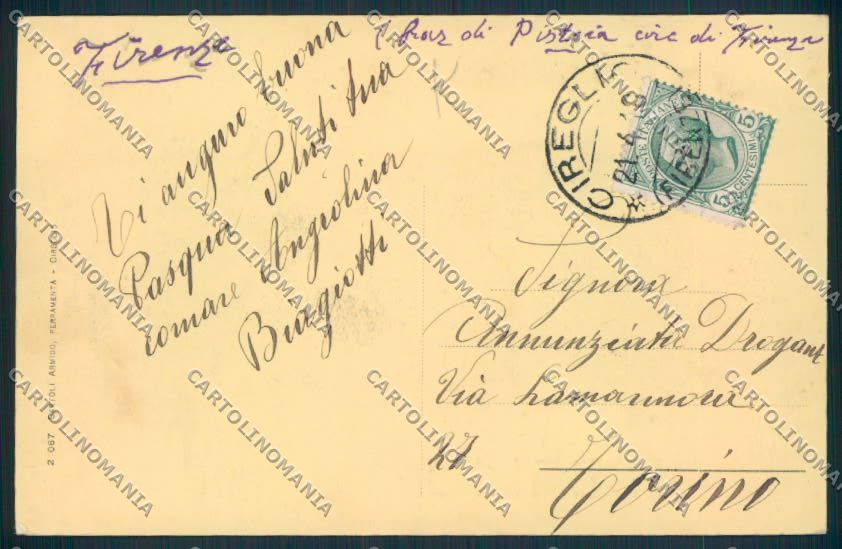 Firenze
( fraz di Pistoia circ di Firenze
Ti auguro buona
Pasqua Saluti tua
comare Angiolina
Biagiotti
CIREGLIO
21. 4.
(FIRENZE)
POSTE ITALIANE
5 CENTESIMI 5
Signora
Annunziata Drogant
Via Lamarmora
27
Torino
2 067 ARMIDO, FERRAMENTA - CIREGLIO
CARTOLINOMANIA